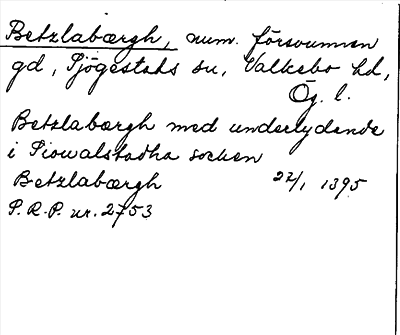 Betzlabærgh, num. försvunnen
gd, Sjögestads sn, Valkebo hd,
Ög. l.
Betzlabærgh med underlydande
i Siowalstadha socken
Betzlabærgh 22/1 1395
S.R.P. nr. 2753